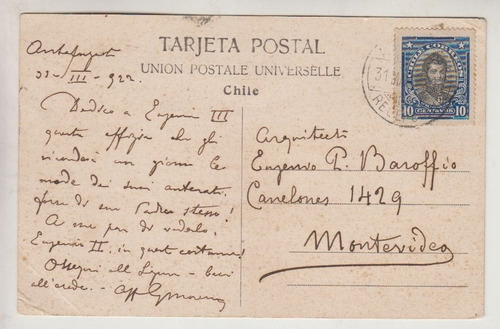 TARJETA POSTAL
UNION POSTALE UNIVERSELLE
Chile
CHILE CORREOS
10 CENTAVOS 10
31
Antofagasta
31-III-922.
Dedico a Eugenio III
questa effigie che gli
ricorderà un giorno le
mode dei suoi antenati,
forse di suo Padre stesso!
A me par di vederlo,
Eugenio II. in quel costume!
Ossequi alla Signora - baci
all'erede.
Arquitecto
Eugenio P. Baroffio
Canelones 1429
Montevideo